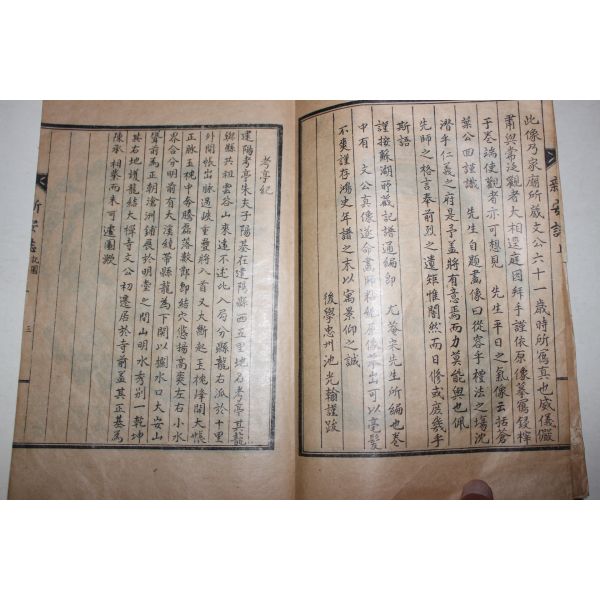 此像乃家廟所藏文公六十一歲時所寫真也威儀儼
肅與常泛觀者大相逕庭因拜手謹依原像摹寫鋟梓
于卷端使觀者亦可想見 先生平日之氣像云括蒼
葉公回謹識 先生自題畫像曰從容乎禮法之場沈
潛乎仁義之府是予盖將有意焉而力莫能與也佩
先師之格言奉前烈之遺矩惟闇然而日修或庶幾乎
斯語
謹按蘇湖所藏記譜通編即 尤菴宋先生所編也卷
中有 文公真像遂命畫師
不爽謹存鴻史年譜之末以寓景仰之誠
後學忠州池光翰謹跋
新安誌 上
考亭紀
建陽考亭朱夫子陽基在建陽縣西五里地名考亭其龍
與縣共祖雲谷山來遠不述此入局分縣龍右派於十里
外開帳出脉過岐重疊將入首又大斷起玉梳降開大帳
正脉玉梳中奔騰磊落數節即結穴悠揚高爽左右小水
界合分明前有大溪繞帶縣龍為下關以捌水口大安山
聳前為正朝滄洲鋪展於明堂之間山明水秀別一乾坤
其右地護龍結大禪寺文公初遷居於寺前盖其正基為
陳承相拳而來可遽圖歟
新安誌 記圖 三